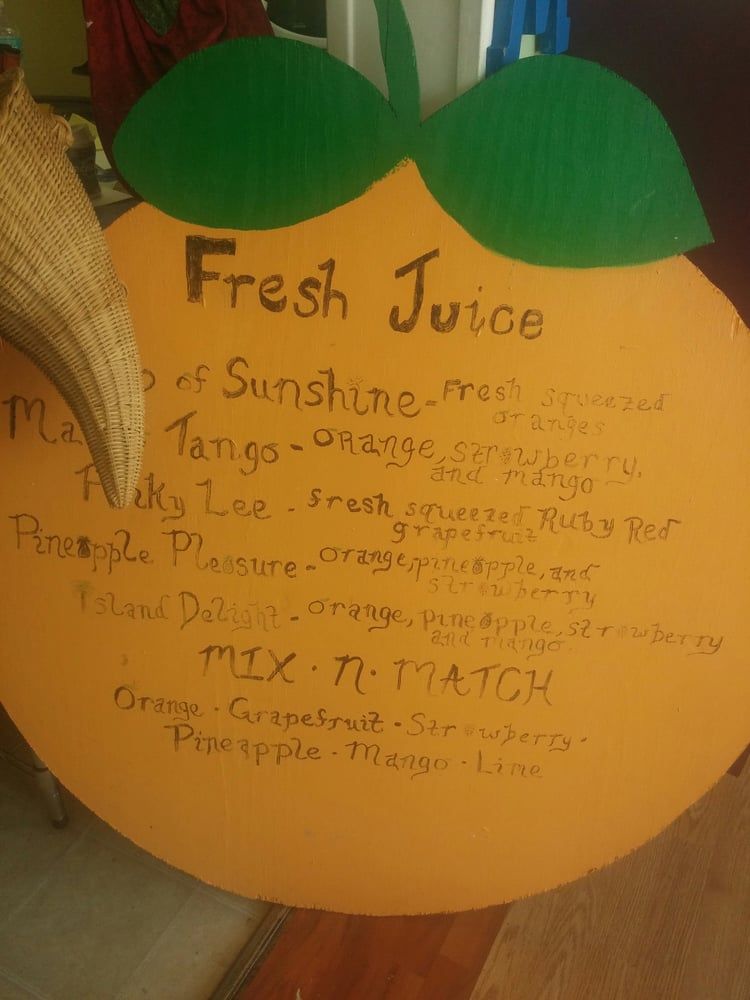 Fresh Juice
of Sunshine - Fresh squeezed
oranges
Tango - orange, strawberry,
and mango
Lee - fresh squeezed Ruby Red
grapefruit
Pineapple Pleasure - orange, pineapple, and
strawberry
Island Delight - orange, pineapple, strawberry
and mango.
MIX · N · MATCH
Orange · Grapefruit · Strawberry ·
Pineapple · Mango · Lime